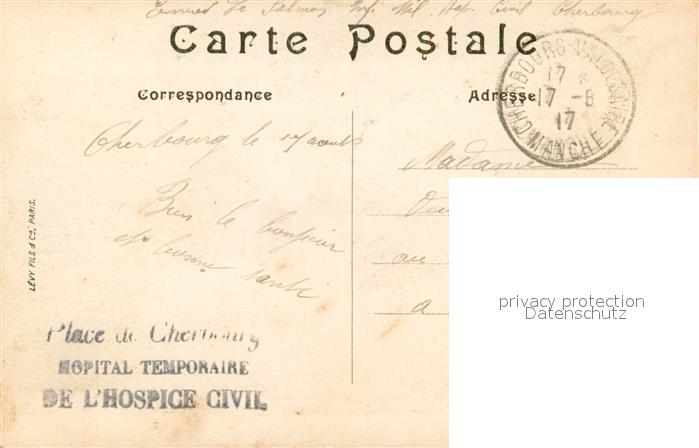 Inf. Mil. Hop. Civil Cherbourg
Carte Postale
Correspondance
Adresse
CHERBOURG-VAL-DE-SAIRE
17
17 -8
17
MANCHE
Cherbourg le 17 août
Madame
Bien le bonjour
et bonne santé
au
a
LÉVY FILS & Cie, PARIS.
privacy protection
Datenschutz
Place de Cherbourg
HOPITAL TEMPORAIRE
DE L'HOSPICE CIVIL